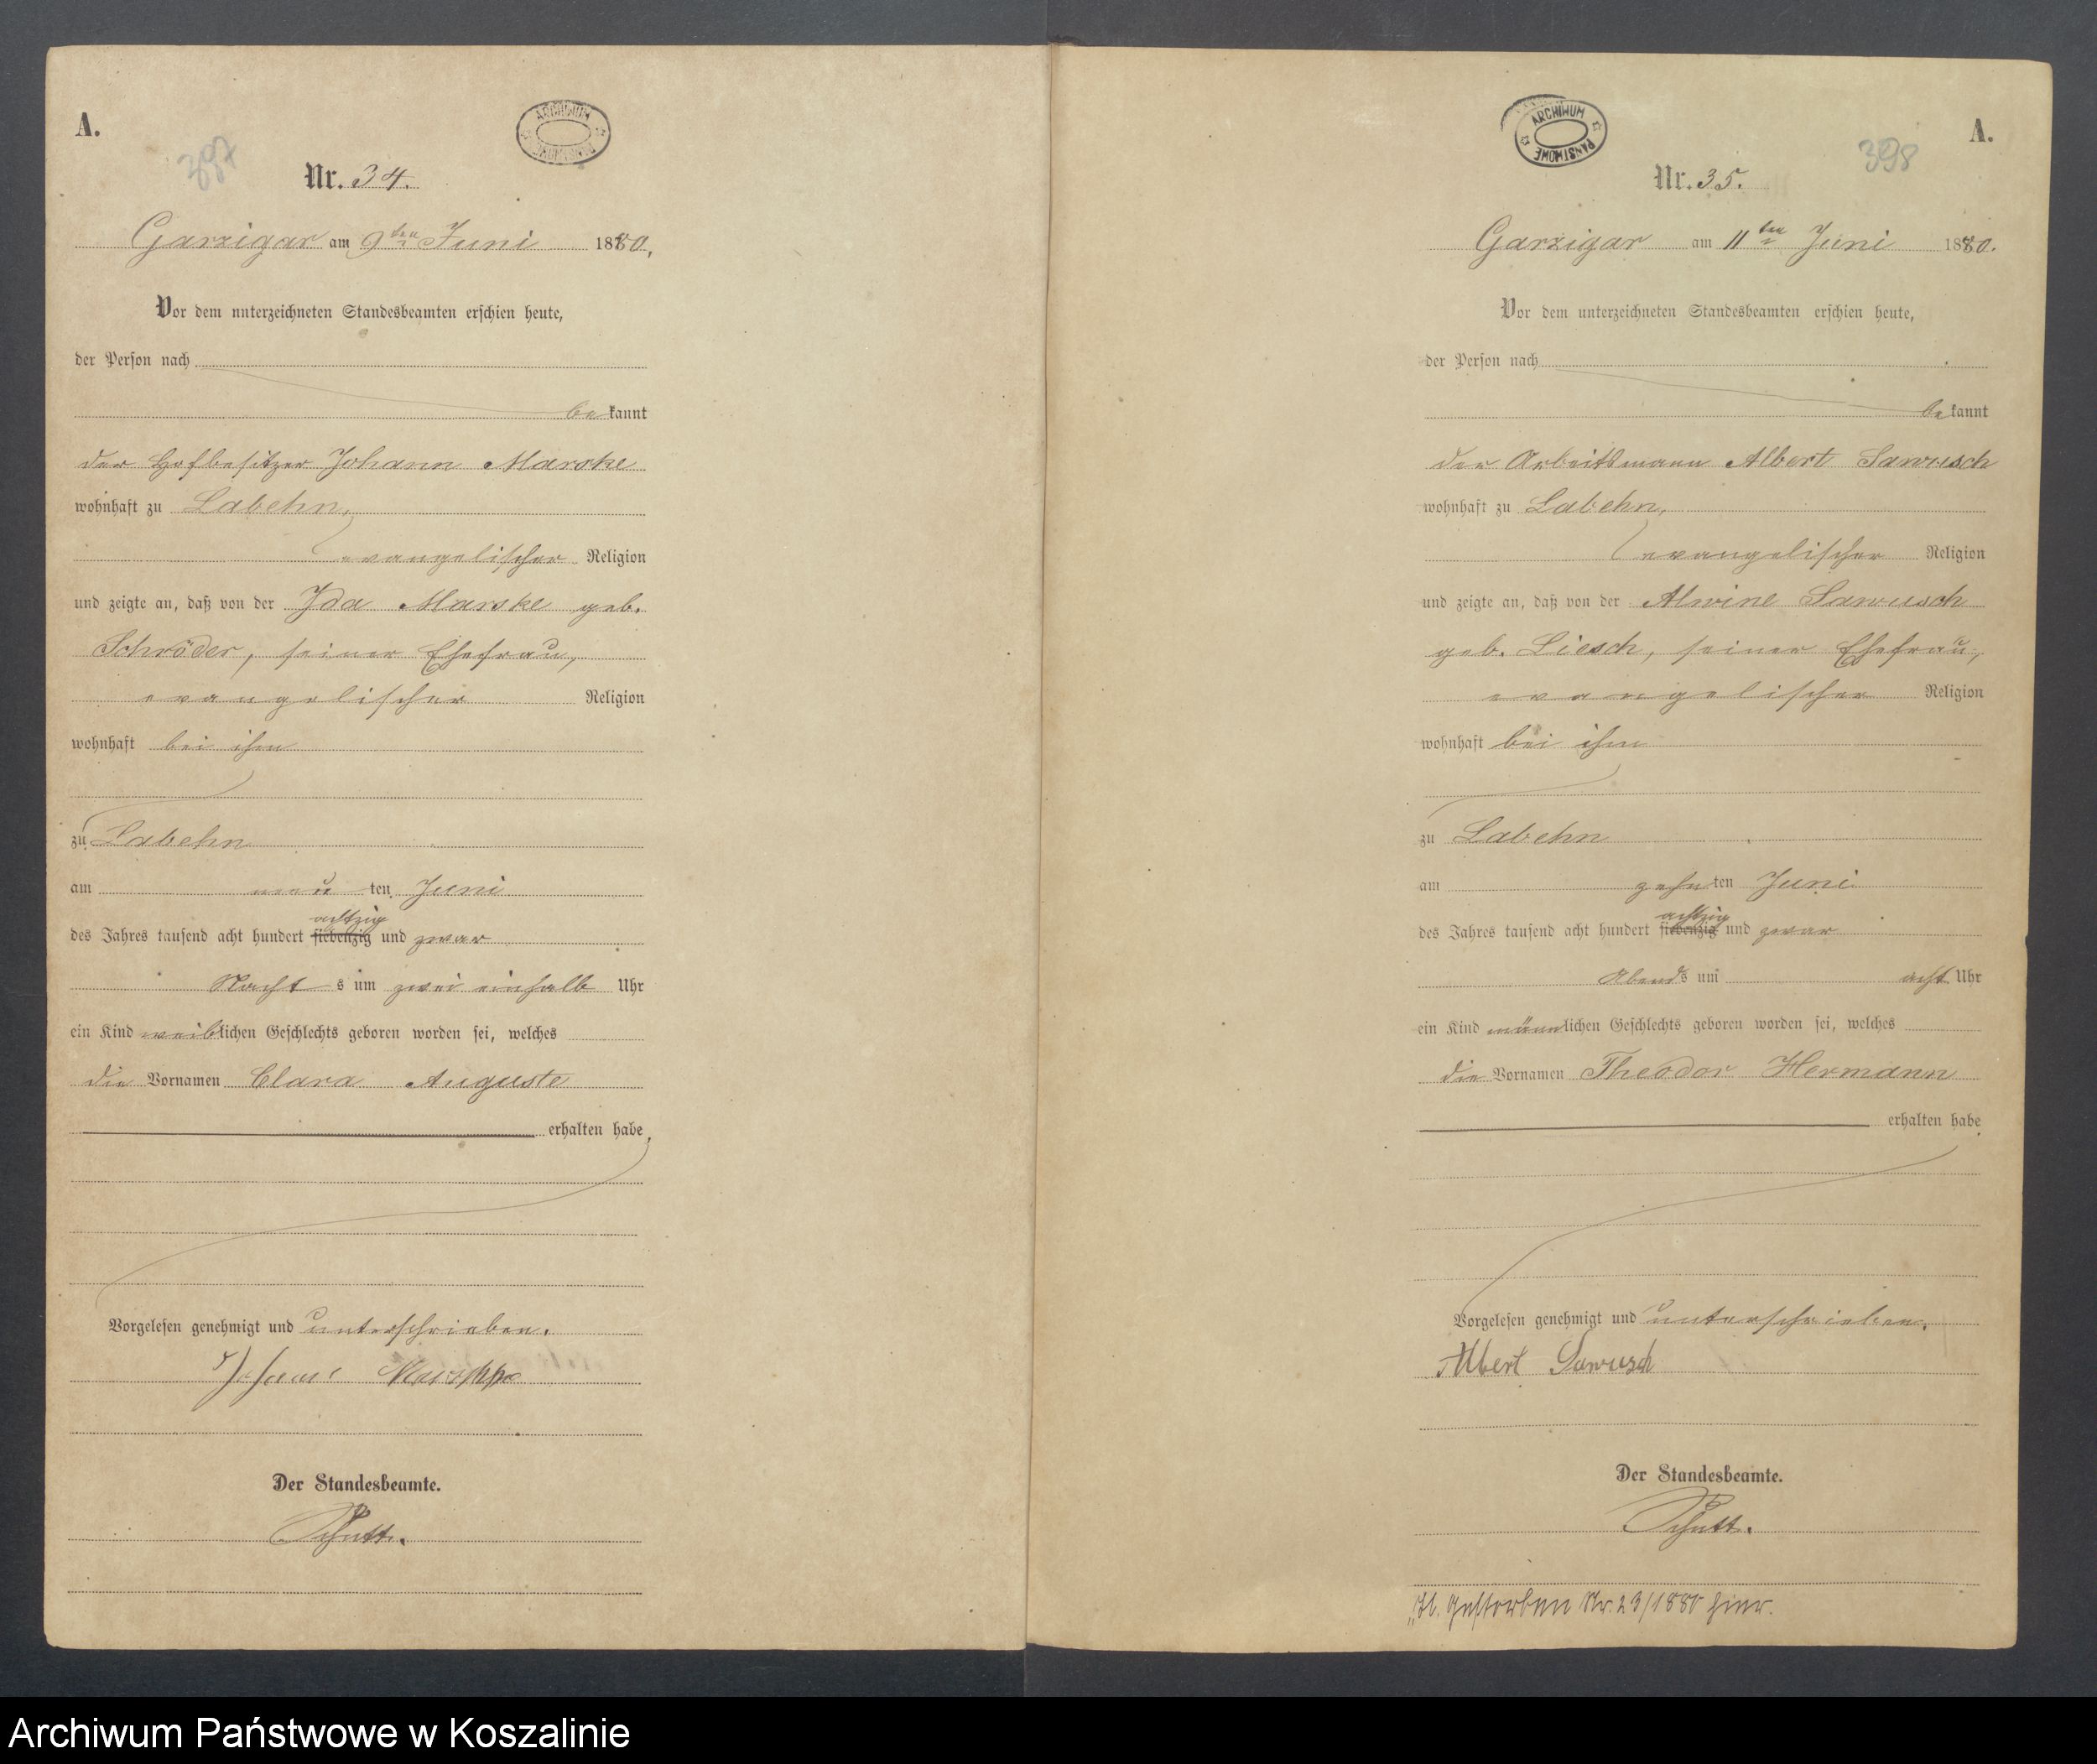 A.
397
ARCHIWUM PAŃSTWOWE
Nr. 34.
Garzigar am 9ten Juni 1880,
Vor dem unterzeichneten Standesbeamten erschien heute,
der Person nach
bekannt
der Hofbesitzer Johann Marske
wohnhaft zu Labehn,
evangelischer Religion
und zeigte an, daß von der Ida Marske geb.
Schröder, seiner Ehefrau,
evangelischer Religion
wohnhaft bei ihm
zu Labehn
am neunten Juni
achtzig
des Jahres tausend acht hundert siebenzig und zwar
Nachts um zwei einhalb Uhr
ein Kind weiblichen Geschlechts geboren worden sei, welches
die Vornamen Clara Auguste
erhalten habe,
Vorgelesen genehmigt und unterschrieben.
Johann
Der Standesbeamte.
A.
398
ARCHIWUM PAŃSTWOWE
Nr. 35.
Garzigar am 11ten Juni 1880.
Vor dem unterzeichneten Standesbeamten erschien heute,
der Person nach
bekannt
der Arbeitsmann Albert Sawusch
wohnhaft zu Labehn,
evangelischer Religion
und zeigte an, daß von der Alwine Sawusch
geb. Liesch, seiner Ehefrau,
evangelischer Religion
wohnhaft bei ihm
zu Labehn
am zehnten Juni
achtzig
des Jahres tausend acht hundert siebenzig und zwar
Abends um acht Uhr
ein Kind männlichen Geschlechts geboren worden sei, welches
die Vornamen Theodor Hermann
erhalten habe.
Vorgelesen genehmigt und unterschrieben.
Albert Sawusch
Der Standesbeamte.
gestorben Nr. 23/1880 hier.
Archiwum Państwowe w Koszalinie